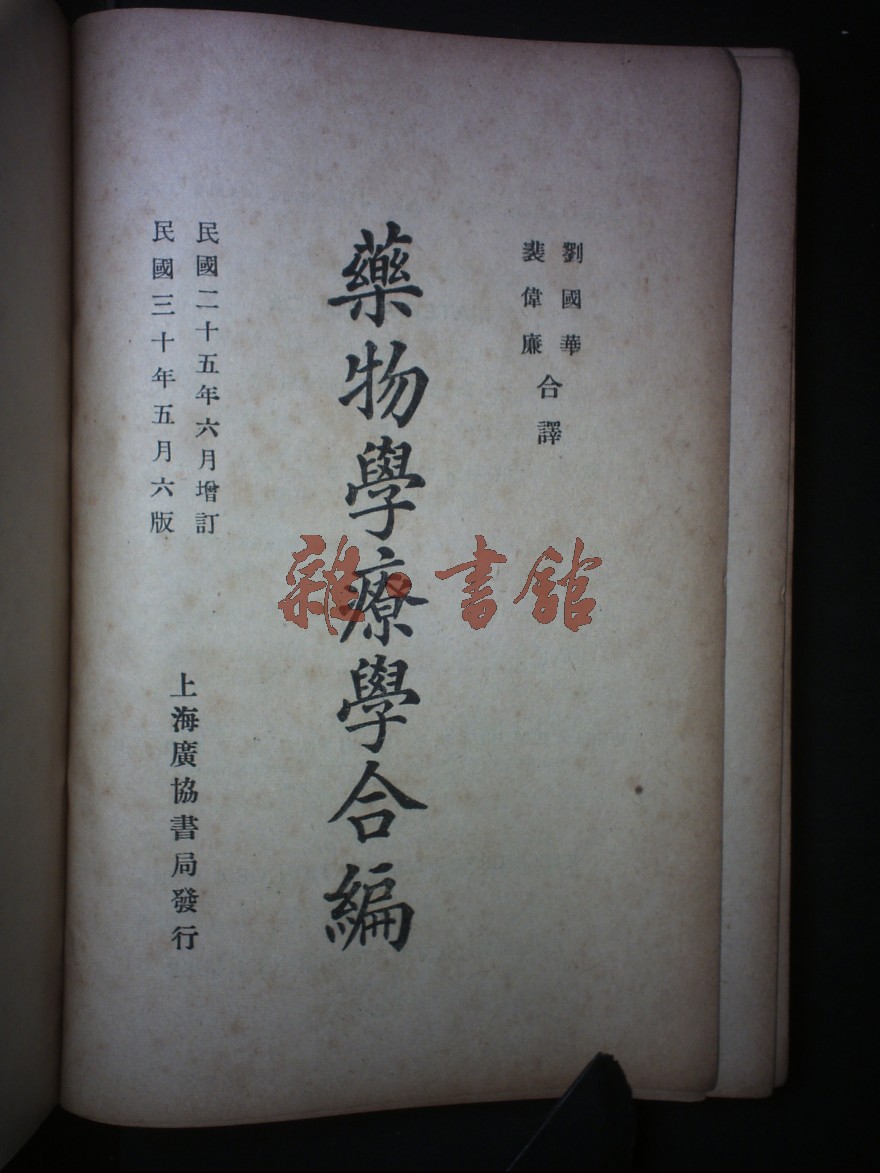 劉國華
裴偉廉
合譯
藥物學療學合編
民國二十五年六月增訂
民國三十年五月六版
上海廣協書局發行
雜·書館